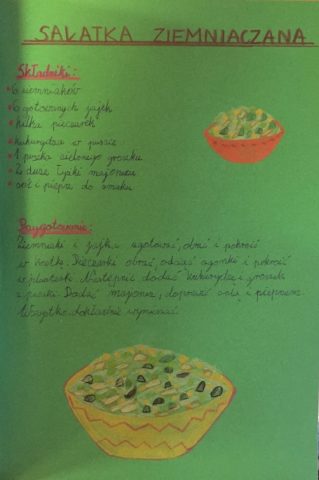 SAŁATKA ZIEMNIACZANA
Składniki:
6 ziemniaków
6 gotowanych jajek
kilka pieczarek
kukurydza w puszce
1 puszka zielonego groszku
2 duże łyżki majonezu
sól i pieprz do smaku
Przygotowanie:
Ziemniaki i jajka ugotować, obrać i pokroić
w kostkę. Pieczarki obrać, odciąć ogonki i pokroić
w plasterki. Następnie dodać kukurydzę i groszek
z puszki. Dodać majonez, doprawić solą i pieprzem.
Wszystko dokładnie wymieszać.